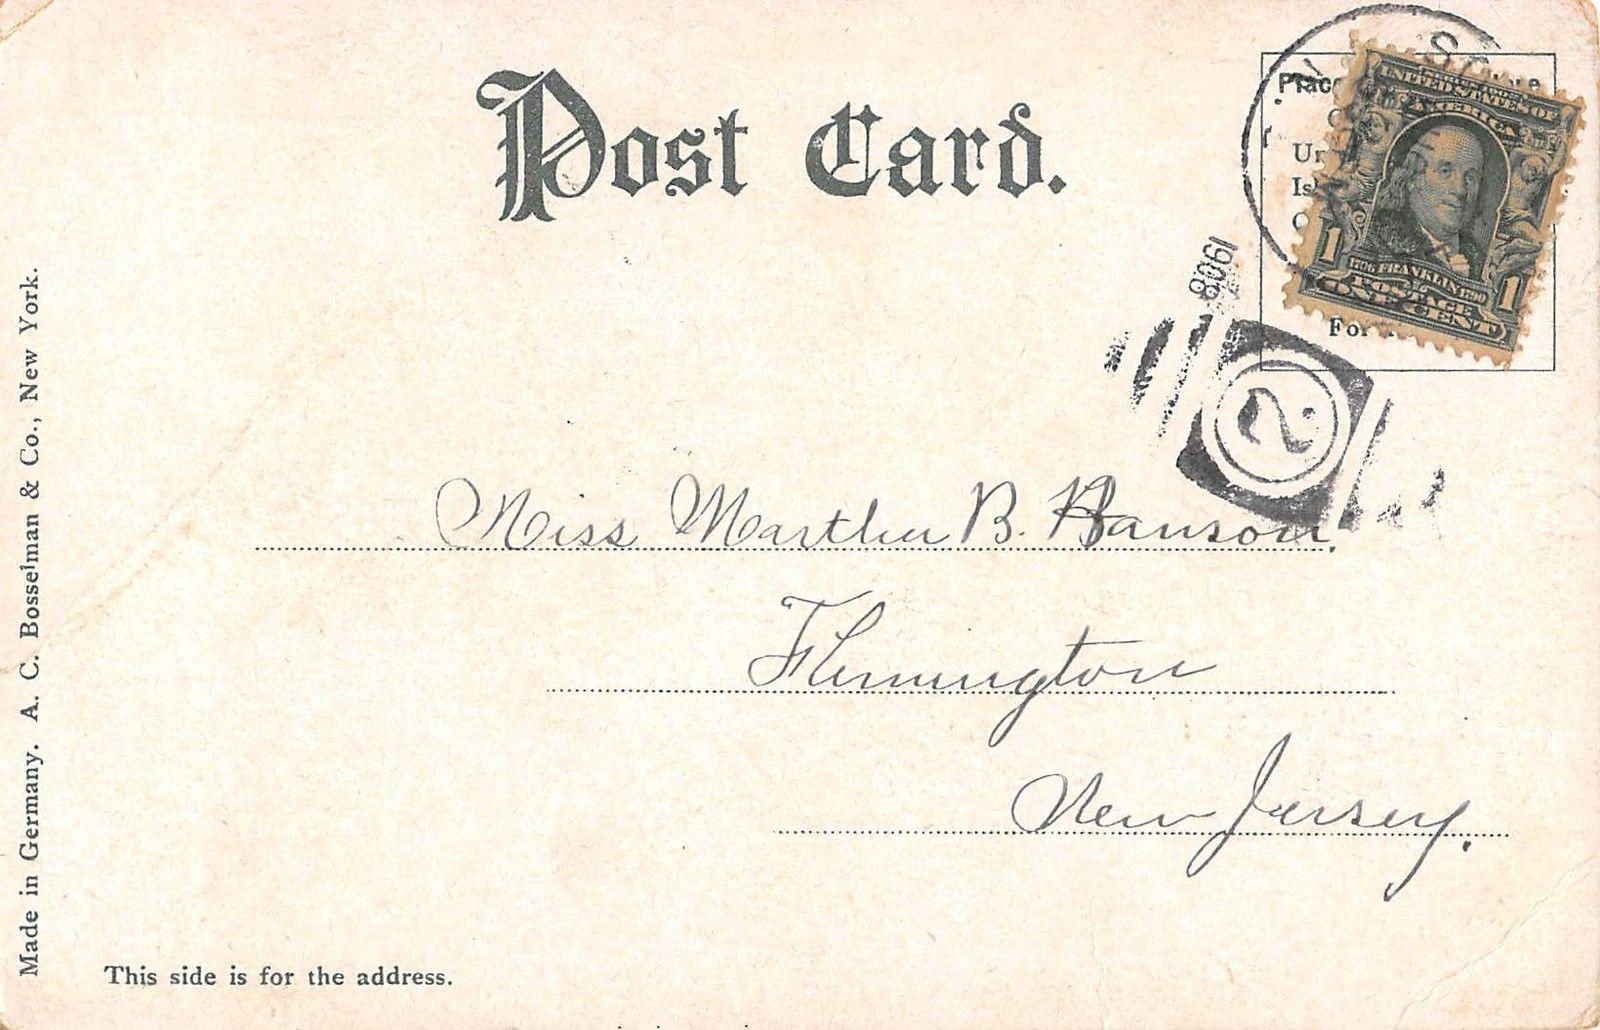 Post Card.
Place
Un
Is
For
UNITED STATES OF
AMERICA
1706 FRANKLIN 1790
POSTAGE
1 ONE CENT 1
1908
2
Miss Martha B. Hanson.
Flemington
New Jersey.
This side is for the address.
Made in Germany. A. C. Bosselman & Co., New York.